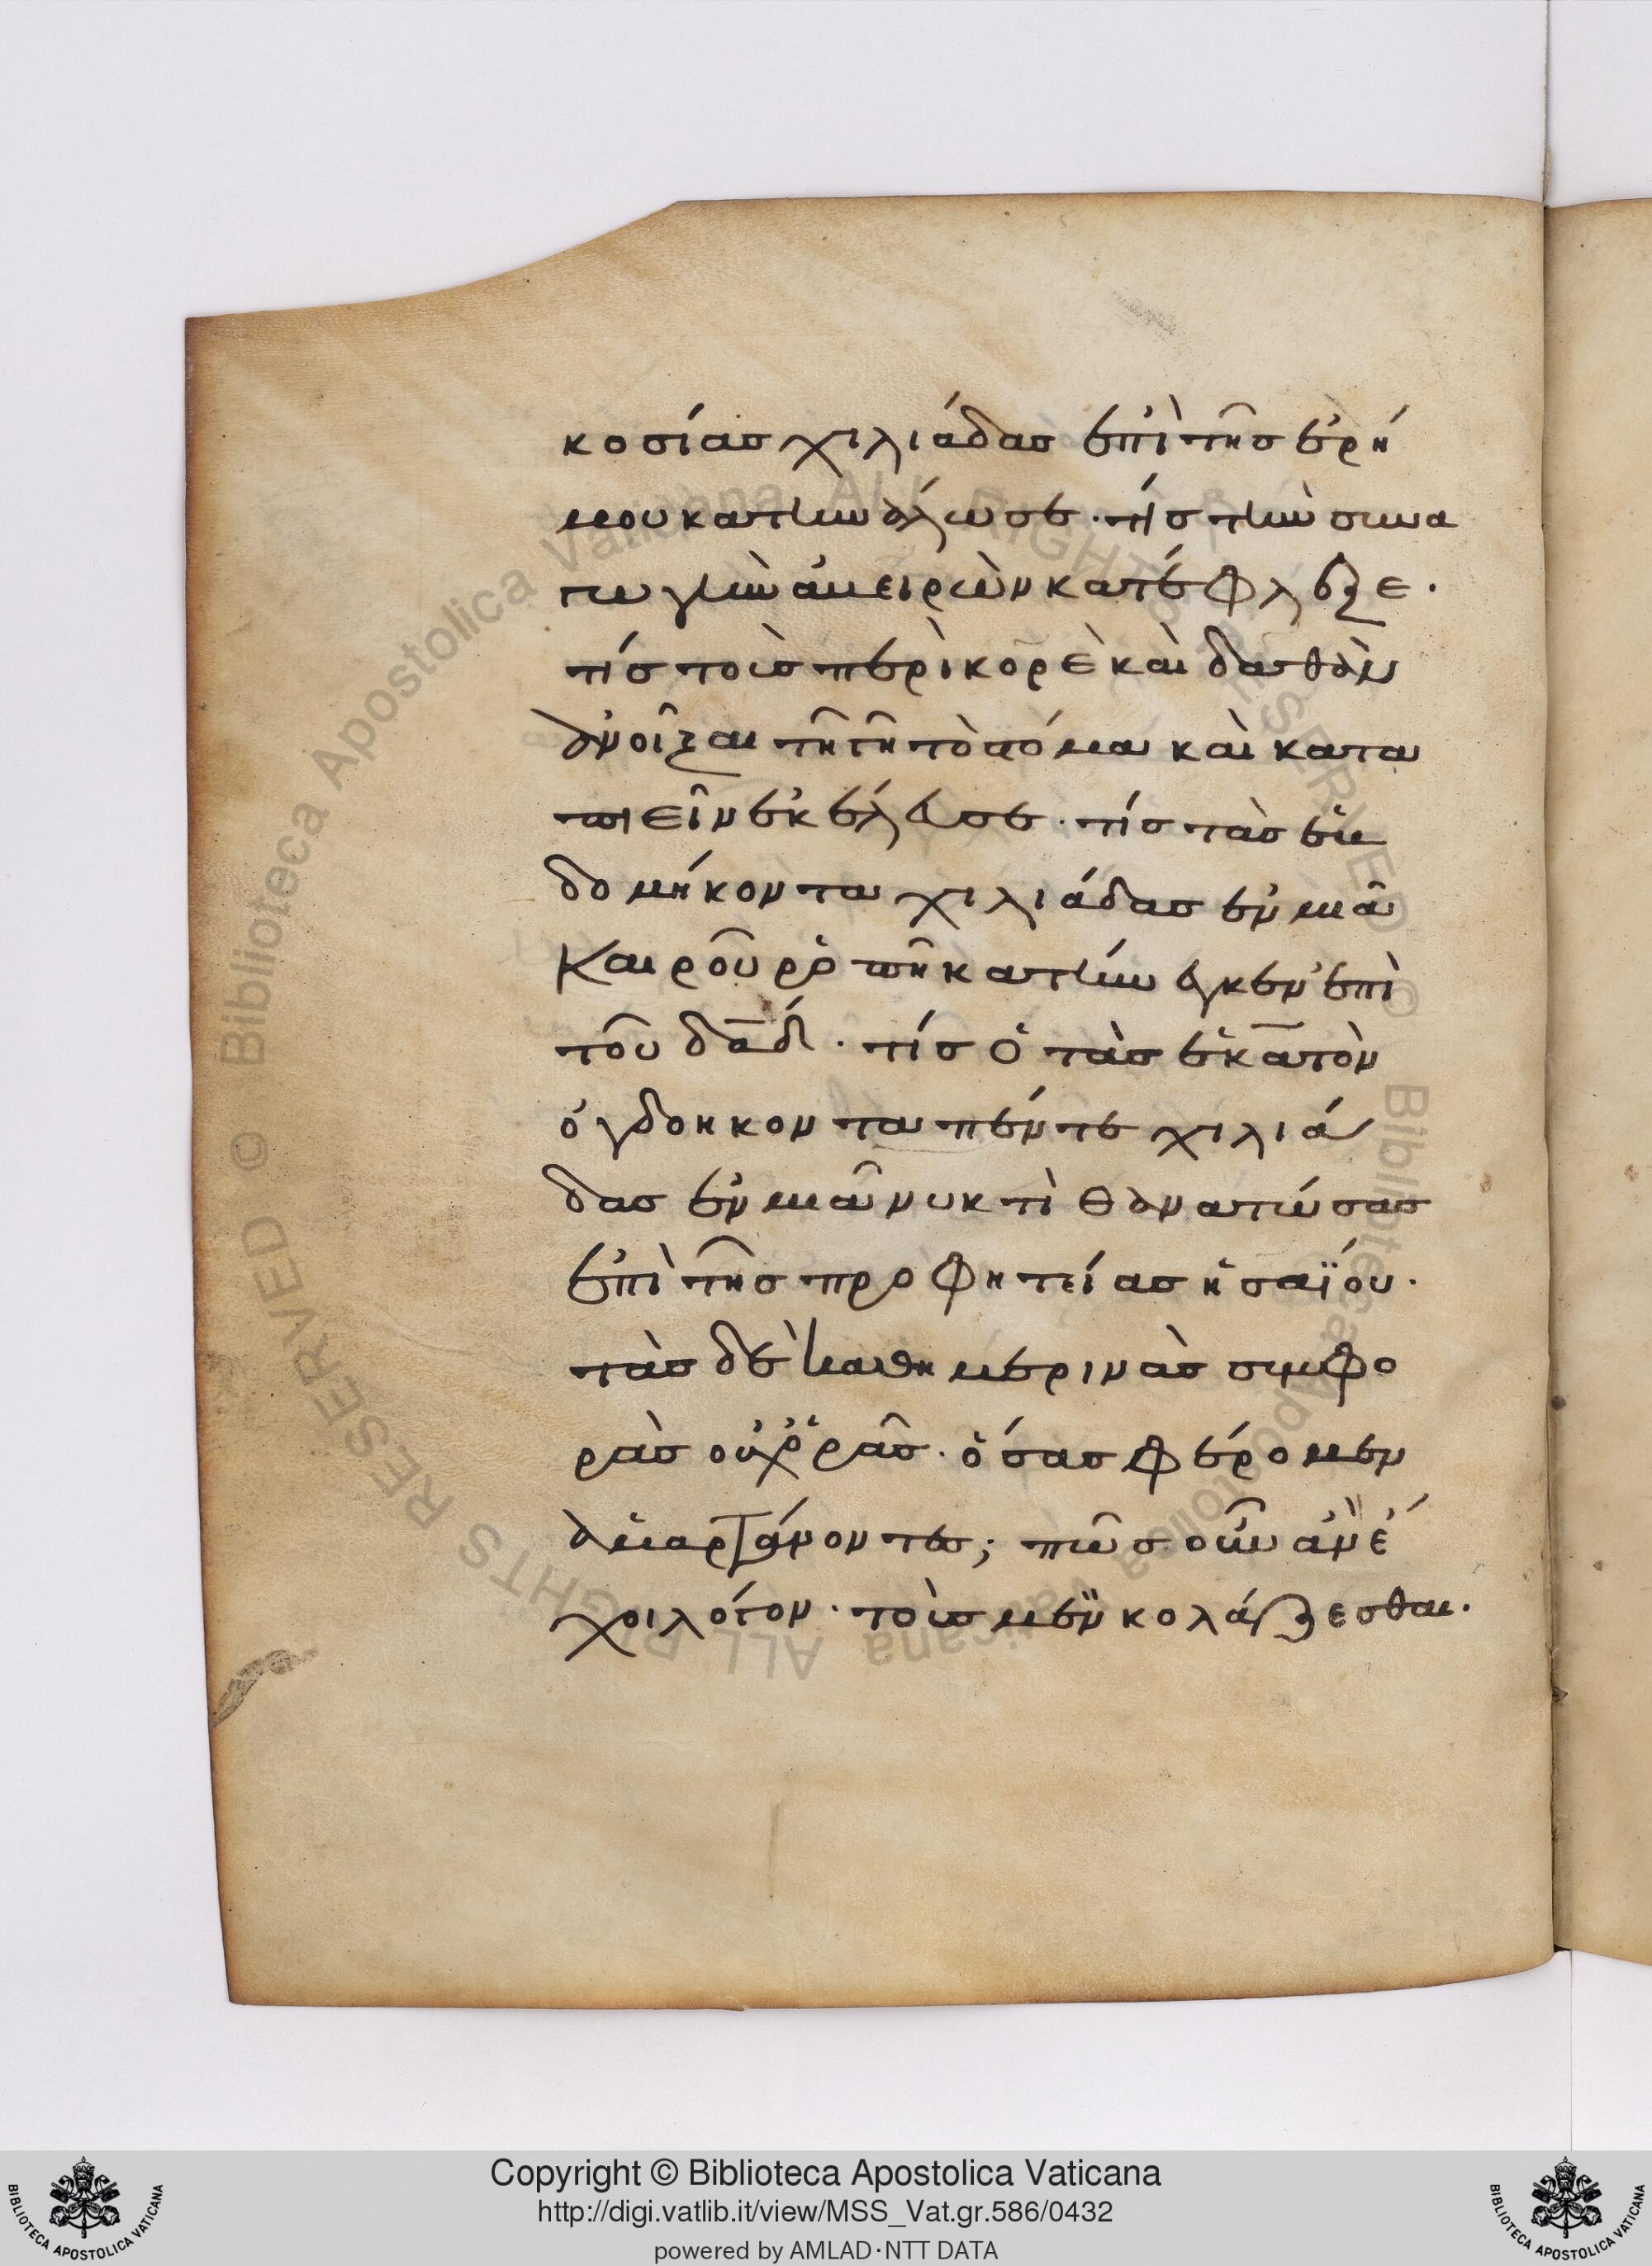 κοσίας χιλιάδας ἐπὶ τῆς ἐρή
μου κατηνάλωσε· τίς τὴν συνα
γωγὴν ἀβειρὼν κατέφλεξε·
τίς τοῖς περὶ κορὲ καὶ δαθὰν
ἀνοῖξαι τῆ γῆ τὸ στόμα καὶ κατα
πιεῖν ἐκέλευσε· τίς τὰς ἑβ
δομήκοντα χιλιάδας ἐν μιᾶ
καιροῦ ῥοπῆ κατήνεγκεν ἐπὶ
τοῦ δᾱδ· τίς ὁ τὰς ἑκατὸν
ὀγδοηκονταπέντε χιλιά
δας ἐν μιᾶ νυκτὶ θανατώσας
ἐπὶ τῆς προφητείας ἡσαΐου·
τὰς δὲ καθημερινὰς συμφο
ρὰς οὐχ ὁρᾶς· ὅσας φέρομεν
ἁμαρτάνοντες; πῶς οὖν ἂν ἔ
χοι λόγον· τοὺς μὲν κολάζεσθαι·
Copyright © Biblioteca Apostolica Vaticana
http://digi.vatlib.it/view/MSS_Vat.gr.586/0432
powered by AMLAD·NTT DATA
BIBLIOTECA APOSTOLICA VATICANA
BIBLIOTECA APOSTOLICA VATICANA
Biblioteca Apostolica Vaticana ALL RIGHTS RESERVED ©
Biblioteca Apostolica Vaticana ALL RIGHTS RESERVED ©